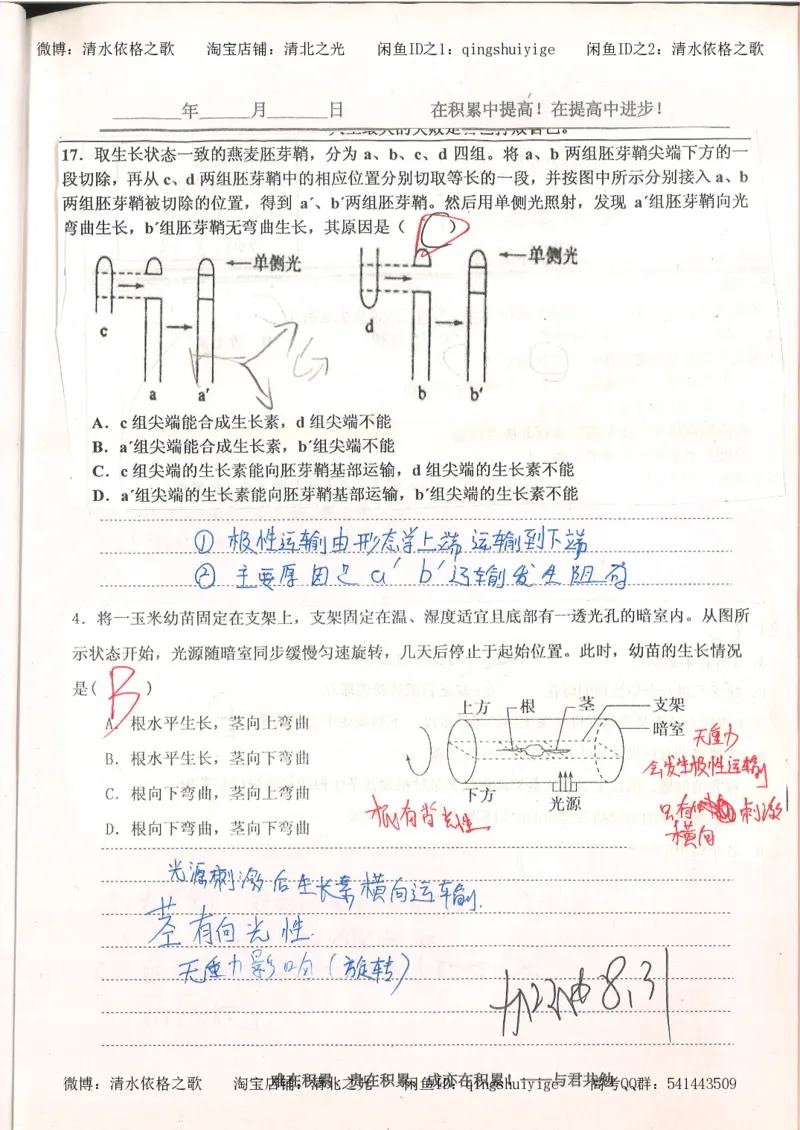 微博：清水依格之歌 淘宝店铺：清北之光 闲鱼ID之1：qingshuiyige 闲鱼ID之2：清水依格之歌
______年_____月______日 在积累中提高！在提高中进步！
17．取生长状态一致的燕麦胚芽鞘，分为 a、b、c、d 四组。将 a、b 两组胚芽鞘尖端下方的一
段切除，再从 c、d 两组胚芽鞘中的相应位置分别切取等长的一段，并按图中所示分别接入 a、b
两组胚芽鞘被切除的位置，得到 a′、b′两组胚芽鞘。然后用单侧光照射，发现 a′组胚芽鞘向光
弯曲生长，b′组胚芽鞘无弯曲生长，其原因是（ C ）
单侧光 单侧光
c d
a a′ b b′
A．c 组尖端能合成生长素，d 组尖端不能
B．a′组尖端能合成生长素，b′组尖端不能
C．c 组尖端的生长素能向胚芽鞘基部运输，d 组尖端的生长素不能
D．a′组尖端的生长素能向胚芽鞘基部运输，b′组尖端的生长素不能
① 极性运输由形态学上端运输到下端
② 主要原因是 a′ b′运输发生阻碍
4．将一玉米幼苗固定在支架上，支架固定在温、湿度适宜且底部有一透光孔的暗室内。从图所
示状态开始，光源随暗室同步缓慢匀速旋转，几天后停止于起始位置。此时，幼苗的生长情况
是( B )
A．根水平生长，茎向上弯曲
B．根水平生长，茎向下弯曲
C．根向下弯曲，茎向上弯曲
D．根向下弯曲，茎向下弯曲
上方 根 茎 支架
暗室
下方 光源
无重力
会发生极性运输
只有 刺激
横向
根有背光性
光源刺激后生长素横向运输.
茎有向光性.
无重力影响（旋转）
8.31
难在积累 贵在积累 成亦在积累！——与君共勉
微博：清水依格之歌 淘宝店铺：清北之光 闲鱼ID：qingshuiyige 高考QQ群：541443509